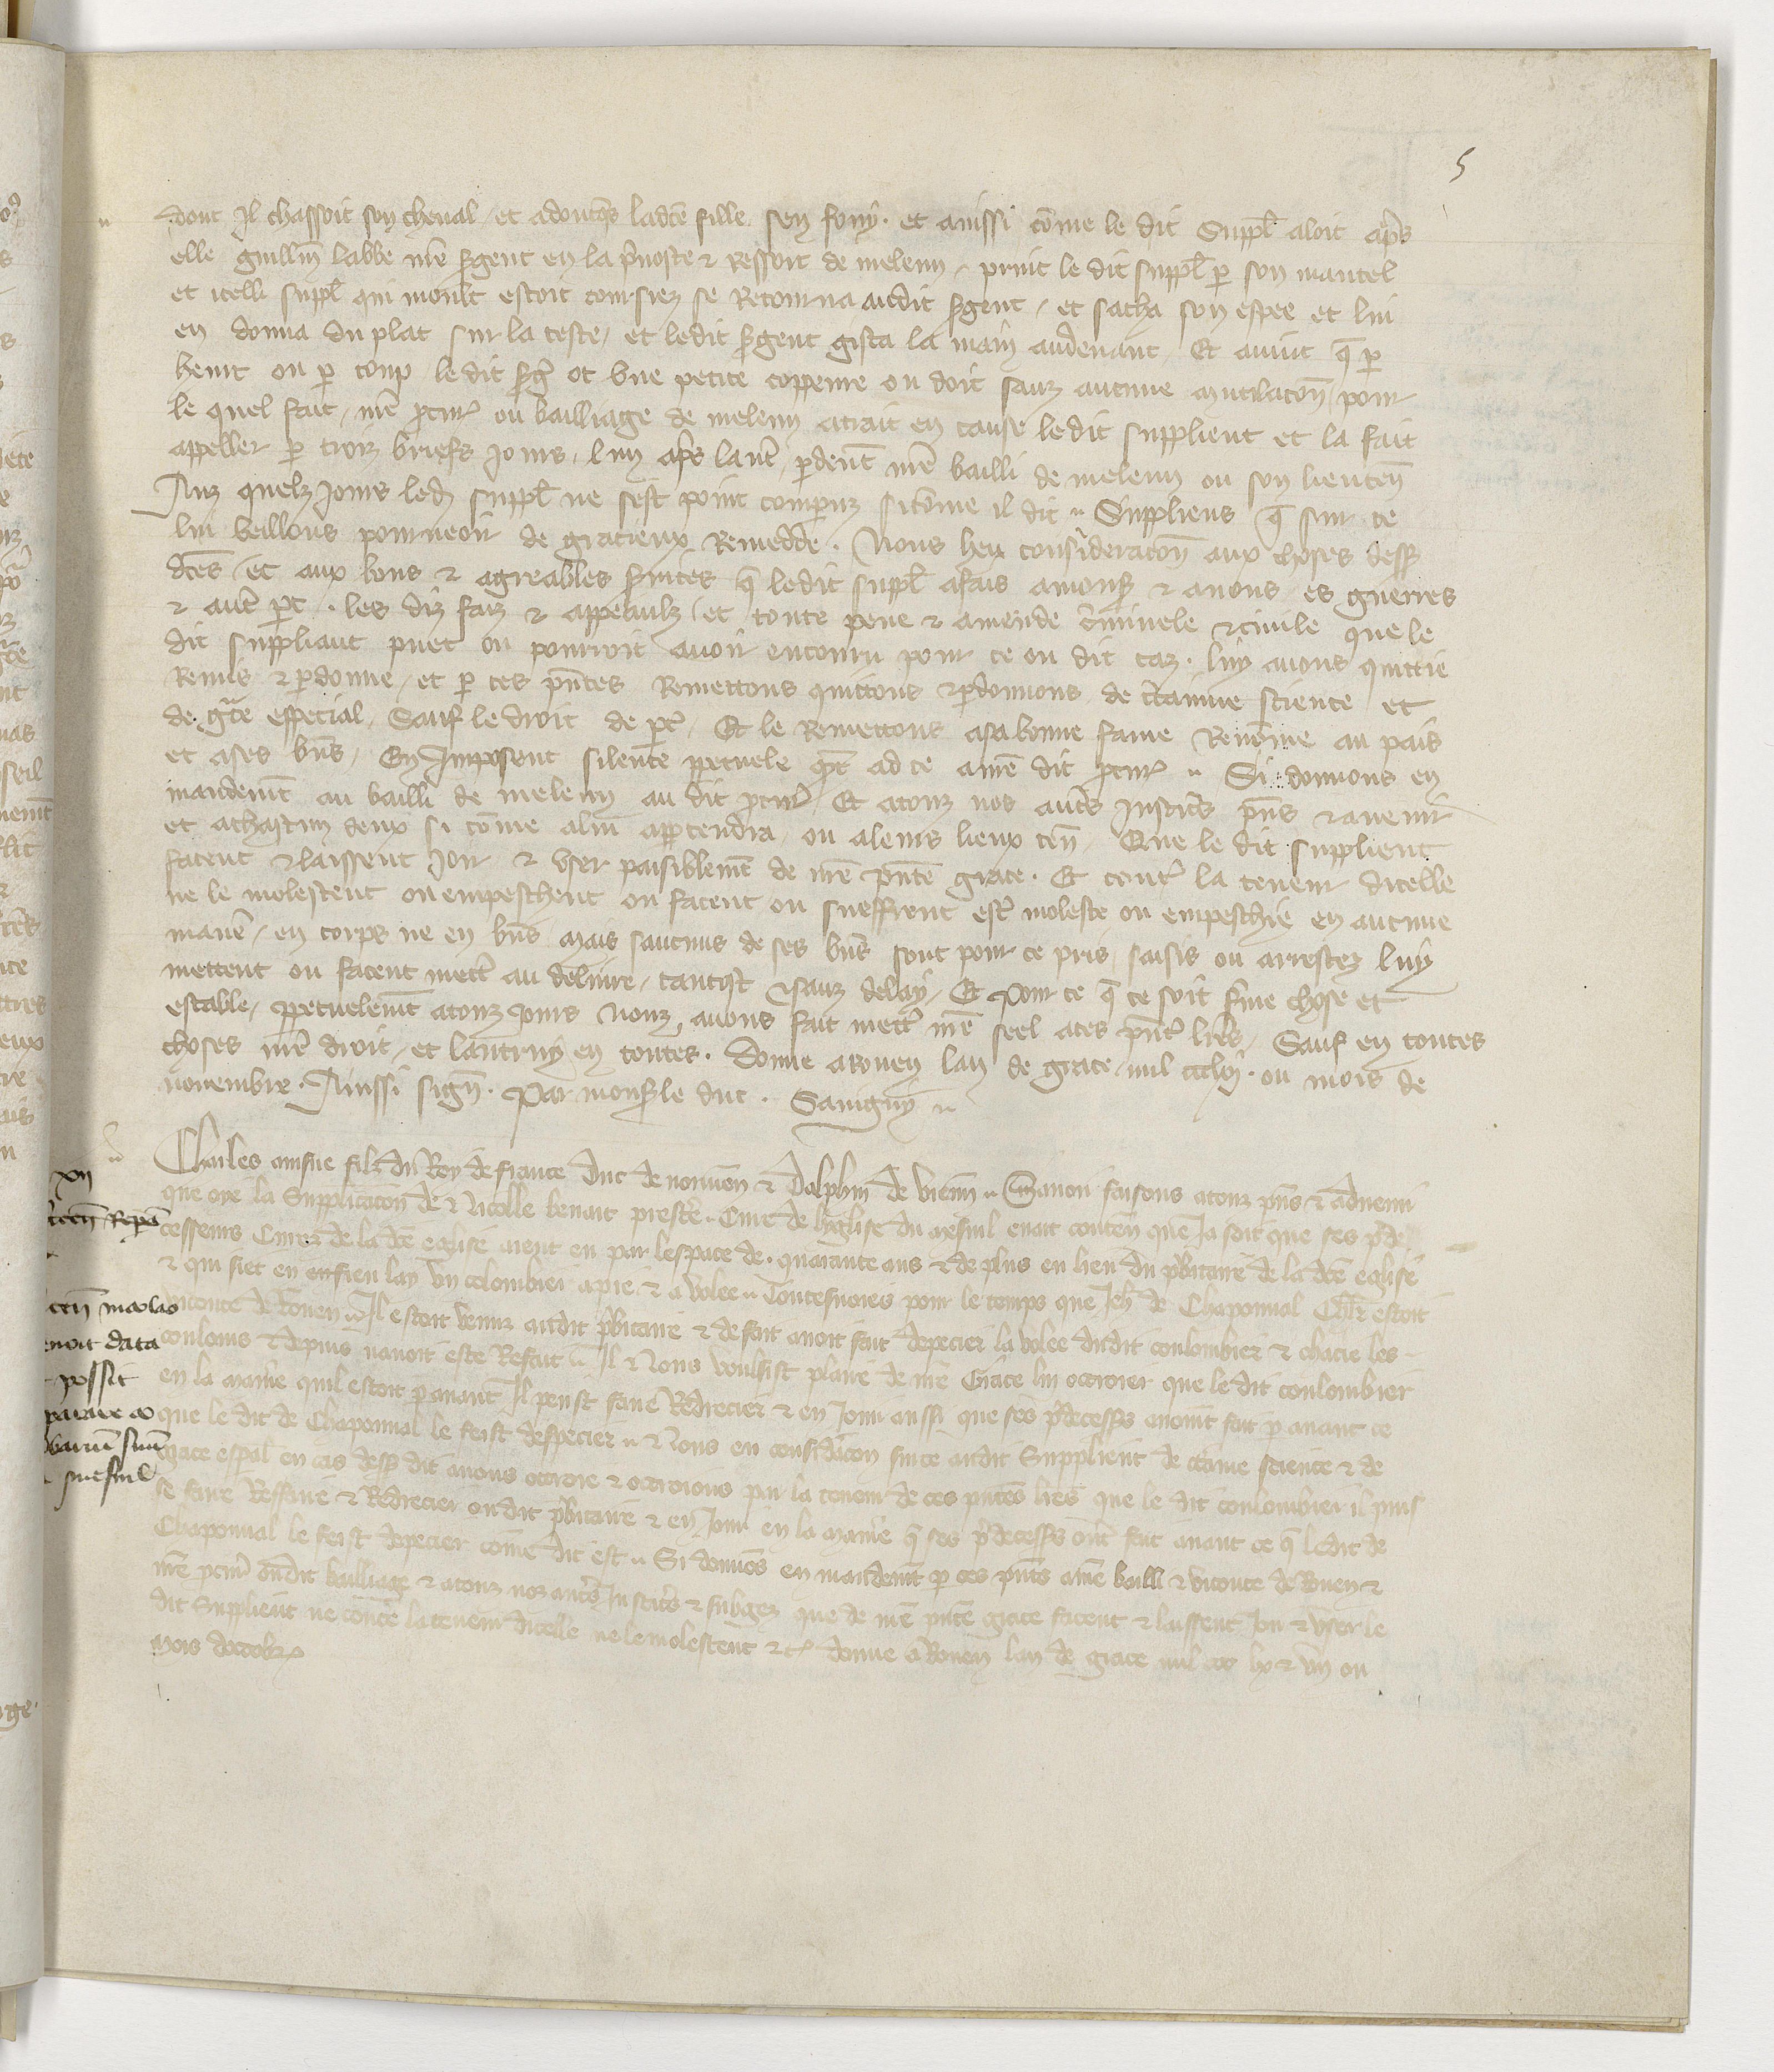 5
dont il chassoit son cheval / et adoncqs ladcē fille sen fouy . et ainssi cōme le dit Suppl̄ aloit ap̄s
elle guillm̄ labbe nr̄e s̄gent en la p̄uoste & Ressort de meleun / prnit le dit suppl̄ p son mantel
et icelli suppl̄ qui moult estoit coursiez se Retourna audit s̄gent / et sacha son espee et lui
en donna du plat sur la teste / et ledit s̄gent gista la main audeuant Et auint q̄ p
heurt ou p coup ledit s̄gt ot vne petite coppeure ou doit sanz aucune mutilacōn / pour
le quel fait / nr̄e p̄cur̄ ou bailliage de meleun atrait en cause ledit supplient et la fait
appeller p trois briefs jours / lun ap̄s lautr̄ p̄deuāt nr̄e bailli de meleun ou son lieuten̄
Auz quelz jours led suppl̄ ne sest point comparuz sicōme il dit Suppliens q̄ sur ce
lui veillons pourueoir de gracieux Remedde . Nous heu consideracōn aux choses dess
dcēs / et aux bons & agreables s̄uices q̄ ledit suppl̄ afais amons̄ & anous es guerres
& autr̄ p̄t . les diz faiz & appeaulz / et toute pene & amende c̄minele & ciuile que le
dit suppliant puet ou pourroit auoir encouru pour ce ou dit caz . luy auons quittie
Remis & p̄donne / et p ces p̄ntes Remettons quittons & p̄donnons de c̄tainne science et
de grāce esspecial / Sauf le droit de p̄t̄ . Et le Remettons asabonne fame Renōmee au pais
et ases bn̄s / En Imposent silence p̄petuele qn̄t ad ce anr̄e dit p̄cur̄ Si donnons en
mandemt̄ au bailli de meleun au dit p̄cur̄ / Et atouz nos autr̄s justic̄s p̄ns & auenir
et achascun deux si cōme alui app̄tendra / ou aleurs lieux ten̄ Que le dit supplient
facent & laissent joir & vser paisiblemt̄ de nr̄e p̄nte grace . Et contr̄ la teneur dicelle
ne le molestent ou empeschent ou facent ou sueffrent estr̄ moleste ou empeschie en aucune
maner̄ / en corps ne en bn̄s mais saucuns de ses bn̄s sont pour ce pris / saisis ou arrestez luy
mettent ou facent mettr̄ au deliure / tantost & sanz delay / Et Pour ce q̄ ce soit f̄me chose et
estable / p̄petuelemt̄ atouz jours Nouz auons fait mettr̄ nr̄e seel aces p̄ntes lr̄es / Sauf en toutes
choses nr̄e droit / et lautruy en toutes . Donne aRouen lan de grace mil ccclvj . ou mois de
nouembre . Ainssi sign̄ . Par mons̄ le duc . Sauigny
Charles ainsne filz du Roy de france Duc de normen̄ & Dalphin de vienn̄ Sauoir faisons atouz p̄ns & aduenir
que oye la Supplicacōn de Nicolle benoit prestr̄e Cure de leglise du mesnil enart conten̄ que Ja soit que ses p̄de
cesseurs Curez de la dcē eglise aient eu par lespace de . quarante ans & de plus en lieu du p̄bitaire de la dcē eglise
& qui siet en ensfieu lay vn colombier apie & a volee Toutesuoies pour le temps que Jeh̄ de Chaponual Chlr̄ estoit
viconte de Rouen Il estoit venuz audit p̄bitaire & de fait auoit fait depecier la volee dudit coulombier & chacie les
coulons & depuis nauoit este Refait Il Nous vousist plaire de nr̄e Grace lui ottroier que le dit coulombier
en la manr̄e quil estoit p̄auant Il peust faire Redrecier & en Jouir aussi que ses p̄decess̄s auoient fait p̄ auant ce
que le dit de Chaponual le feist despecier Nous en considr̄acōn sur ce audit Supplient de c̄taine science & de
grace esp̄al en cas dess̄ dit auons ottroie & ottroions par la teneur de ces p̄ntes lr̄es que le dit coulombier il puis
se faire Reffaire & Redrecier ou dit p̄bitaire & en Jouir en la manr̄e q̄ ses p̄decess̄s ont fait auant ce q̄ ledit de
Chaponual le feist depecier cōme dit est Si donnons en mandemt̄ p ces p̄ntes anr̄e bailli & viconte de Rouen &
nr̄e p̄cur̄ oudit bailliage & atouz noz autr̄s Justic̄s & subgez que de nr̄e p̄nte grace facent & laissent Joir & vser le
dit Supplient ne contr̄e la teneur dicelle ne le molestent &c̄ donne aRouen lan de grace mil ccc lv & vn ou
mois doctobr̄
xii
nicolao
enoit data
possit
suū
mesnil